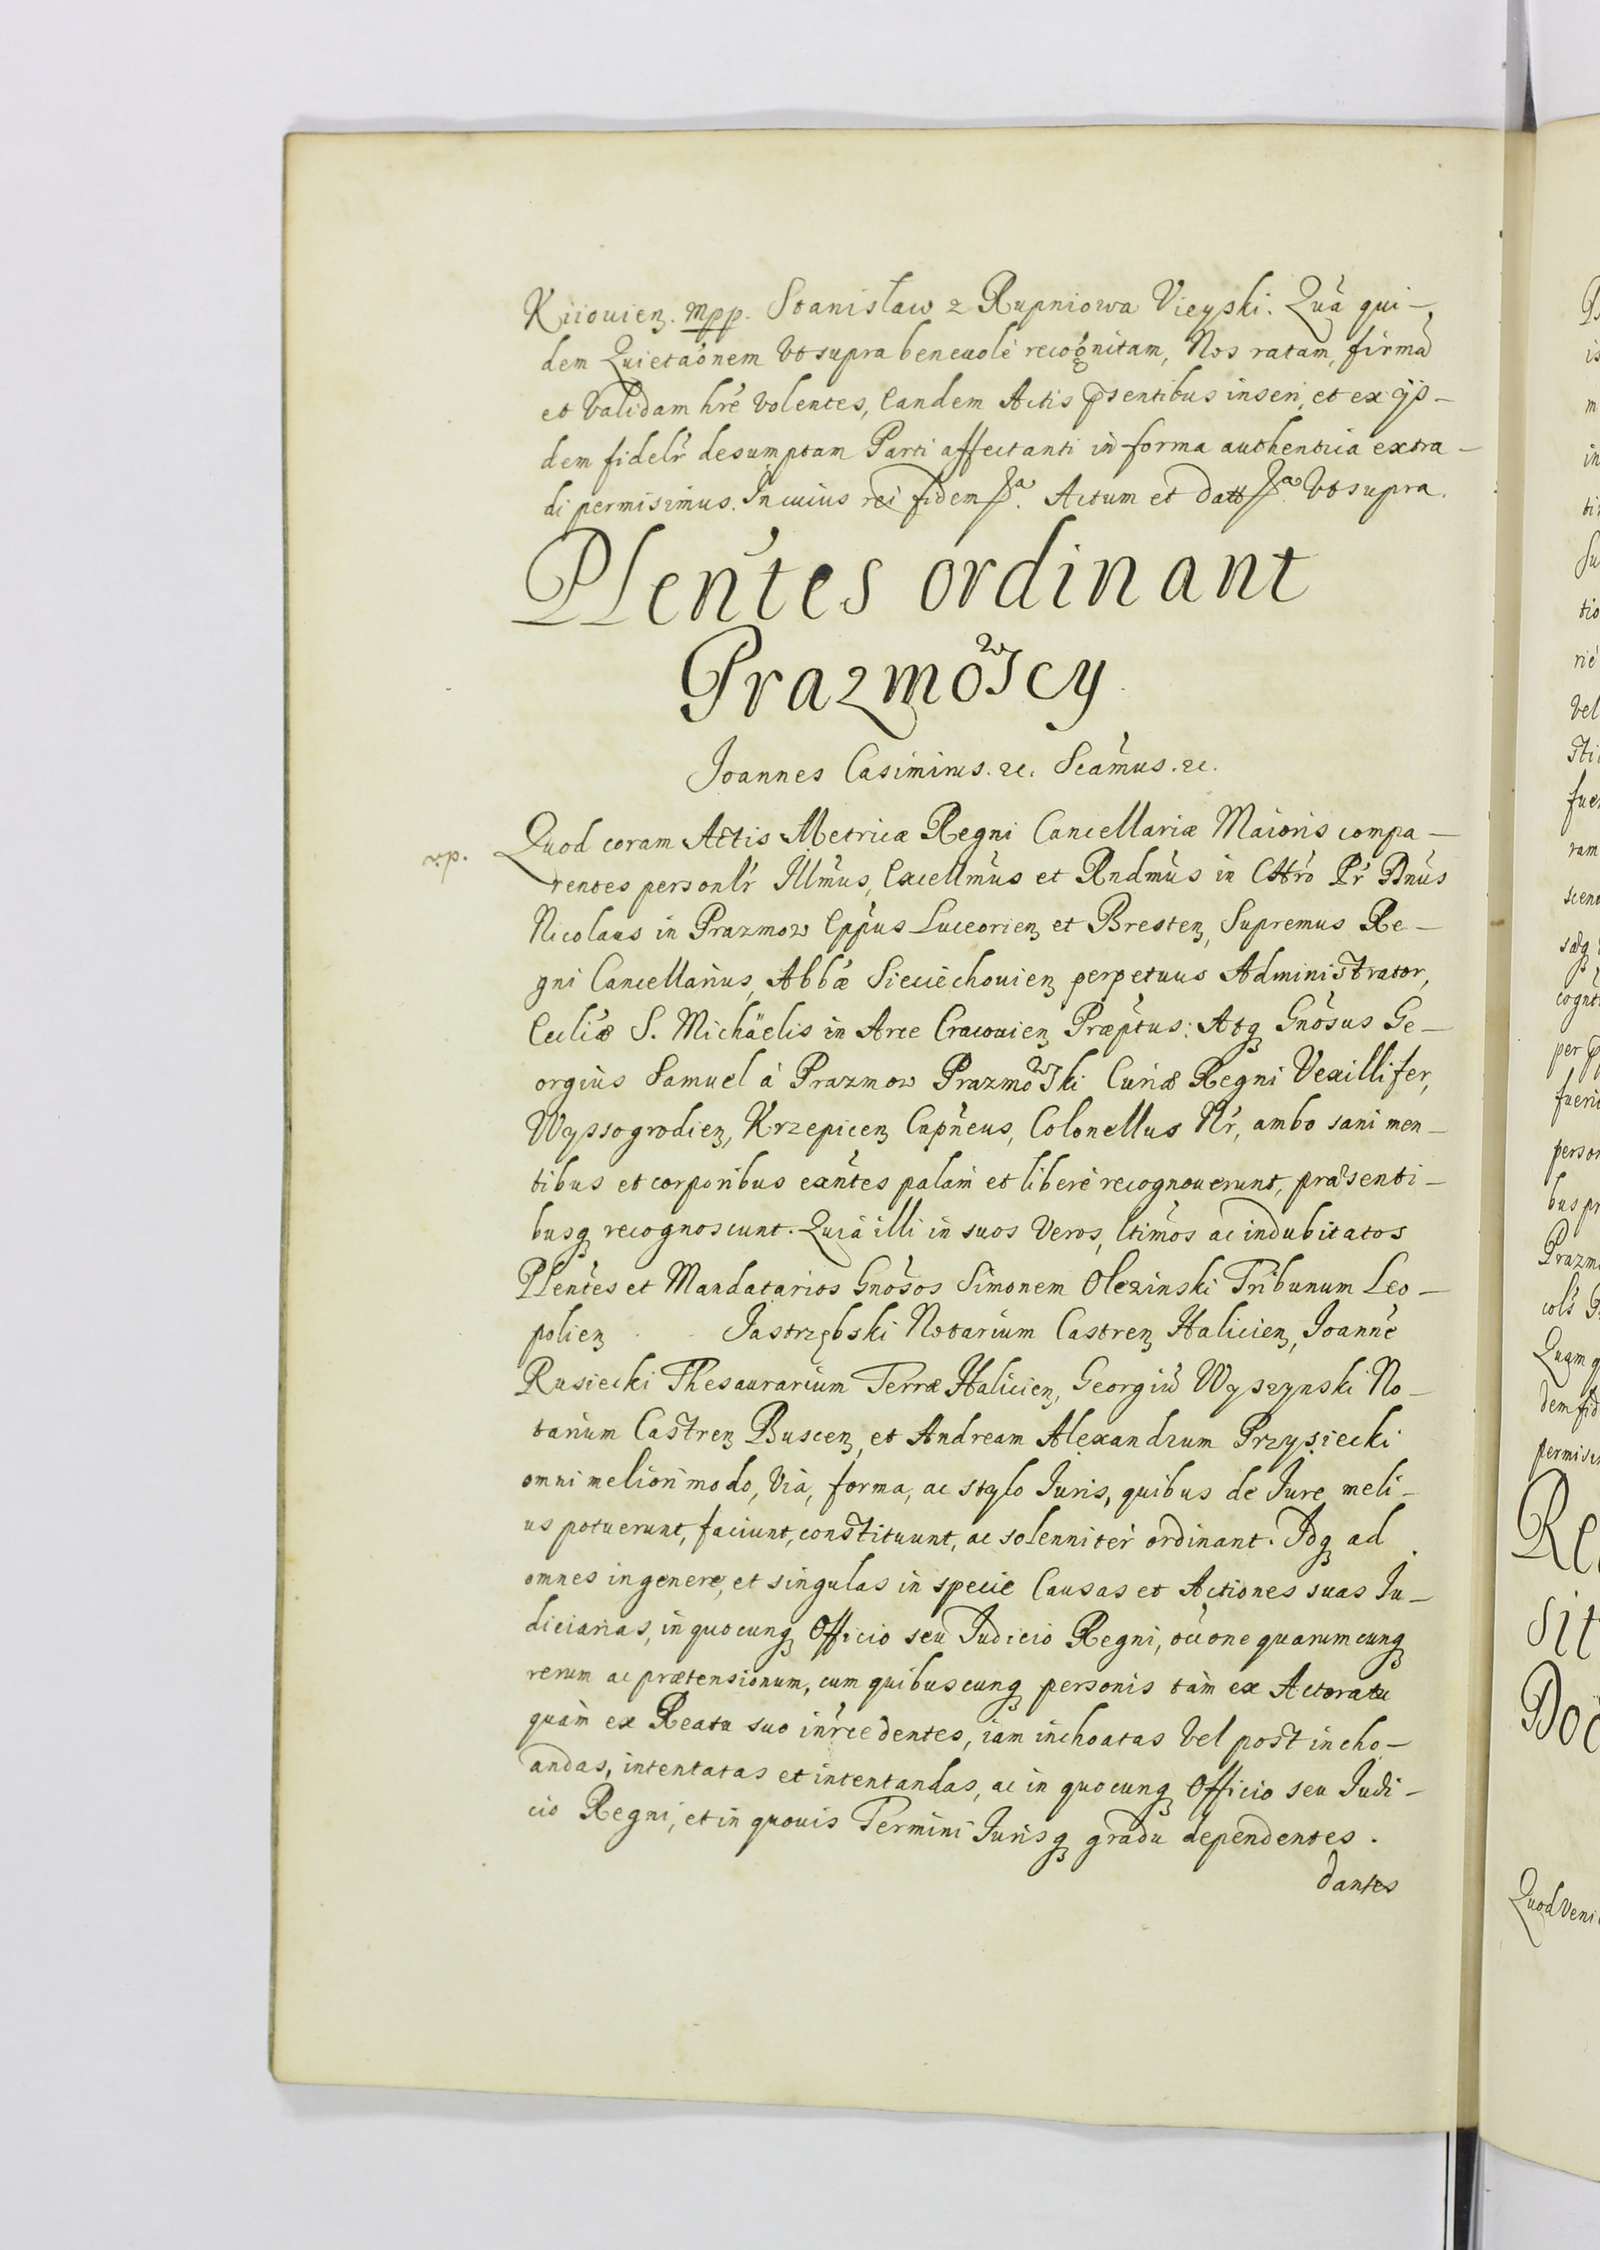 Kiiouien. mpp. Stanisław z Rupniowa Vieyski. Quã qui-
dem Quietãonem Vt supra beneuolè recognitam, Nos ratam, firmã
et Validam hrẽ Volentes, Eandem Actis pñtibus inseri, et ex ijs-
dem fidelr̃ desumptam Parti affectanti in forma authentica extra-
di permisimus. In cuius rei fidem &a. Actum et Datt &a Vt supra.
Plen̄tes ordinant
Prazmowscy
Ioannes Casimirus. &c. Scãmus. &c.
Quod coram Actis Metricæ Regni Cancellariæ Maioris compa-
rp.
rentes personlr̃ Illm̃us, Excellm̃us et Rndm̃us in Chr̃o Pr̃ Dnũs
Nicolaus in Prazmow Epp̃us Luceorien et Bresten, Supremus Re-
gni Cancellarius, Abb̃æ Sieciechouien perpetuus Administrator,
Eccliæ S. Michäelis in Arce Cracouien Præp̃tus: Atq Gnõsus Ge-
orgius Samuel à Prazmow Prazmowski Curiæ Regni Vexillifer,
Wyssogrodien, Krzepicen Capñeus, Colonellus Nr̃, ambo sani men-
tibus et corporibus exñtes palam et liberè recognouerunt, præsenti-
busq recognoscunt. Quia illi in suos Veros, Ltimos ac indubitatos
Plen̄tes et Mandatarios Gnõsos Simonem Olezinski Tribunum Leo-
polien Jastrzębski Notarium Castren Halicien, Joannẽ
Rusiecki Thesaurarium Terræ Halicien, Georgiũ Wyszynski No-
tarium Castren Buscen, et Andream Alexandrum Przysiecki
omni meliori modo, Via, forma, ac stylo Iuris, quibus de Iure meli-
us potuerunt, faciunt, constituunt, ac solenniter ordinant. Idq ad
omnes in genere, et singulas in specie Causas et Actiones suas Iu-
diciarias, in quocunq Officio seu Iudicio Regni, occõne quarumcunq
rerum ac prætensionum, cum quibuscunq personis tàm ex Actoratu
quàm ex Reatu suo inr̃cedentes, iam inchoatas Vel post incho-
andas, intentatas et intentandas, ac in quocunq Officio seu Iudi-
cio Regni, et in quouis Termini Iurisq gradu dependentes.
dantes